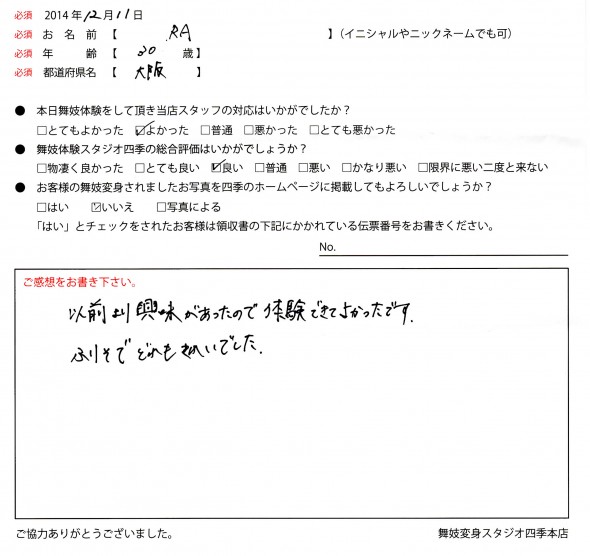 必須 2014年12月11日
必須 お名前【 RA 】(イニシャルやニックネームでも可)
必須 年齢【 30 歳】
必須 都道府県名【 大阪 】
● 本日舞妓体験をして頂き当店スタッフの対応はいかがでしたか?
□とてもよかった ☑よかった □普通 □悪かった □とても悪かった
● 舞妓体験スタジオ四季の総合評価はいかがでしょうか?
□物凄く良かった □とても良い ☑良い □普通 □悪い □かなり悪い □限界に悪い二度と来ない
● お客様の舞妓変身されましたお写真を四季のホームページに掲載してもよろしいでしょうか?
□はい ☑いいえ □写真による
「はい」とチェックをされたお客様は領収書の下記にかかれている伝票番号をお書きください。
No.
ご感想をお書き下さい。
以前より興味があったので体験できてよかったです.
ふりそでどれもきれいでした.
ご協力ありがとうございました。
舞妓変身スタジオ四季本店